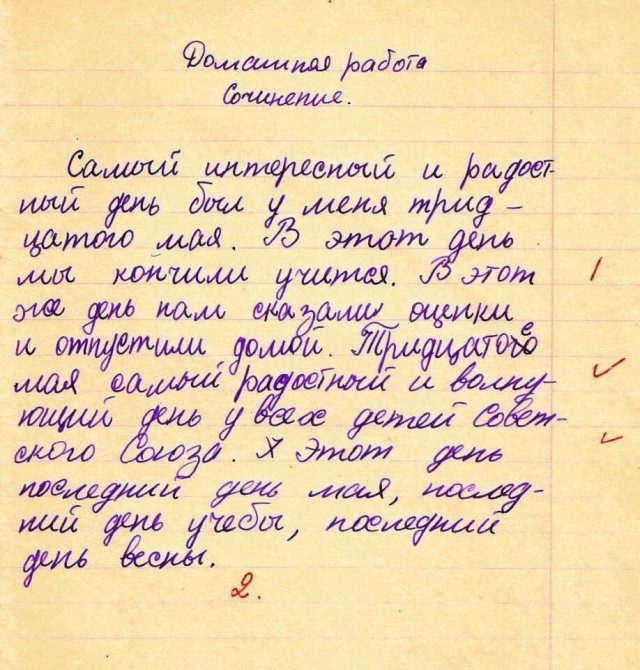 Домашняя работа
Сочинение.
Самый интересный и радост-
ный день был у меня трид-
цатого мая. В этот день
мы кончили учится. В этот
же день нам сказали оценки
и отпустили домой. Тридцатого
мая самый радостный и волну-
ющий день у всех детей Совет-
ского Союза. Этот день
последний день мая, послед-
ний день учебы, последний
день весны.
2.